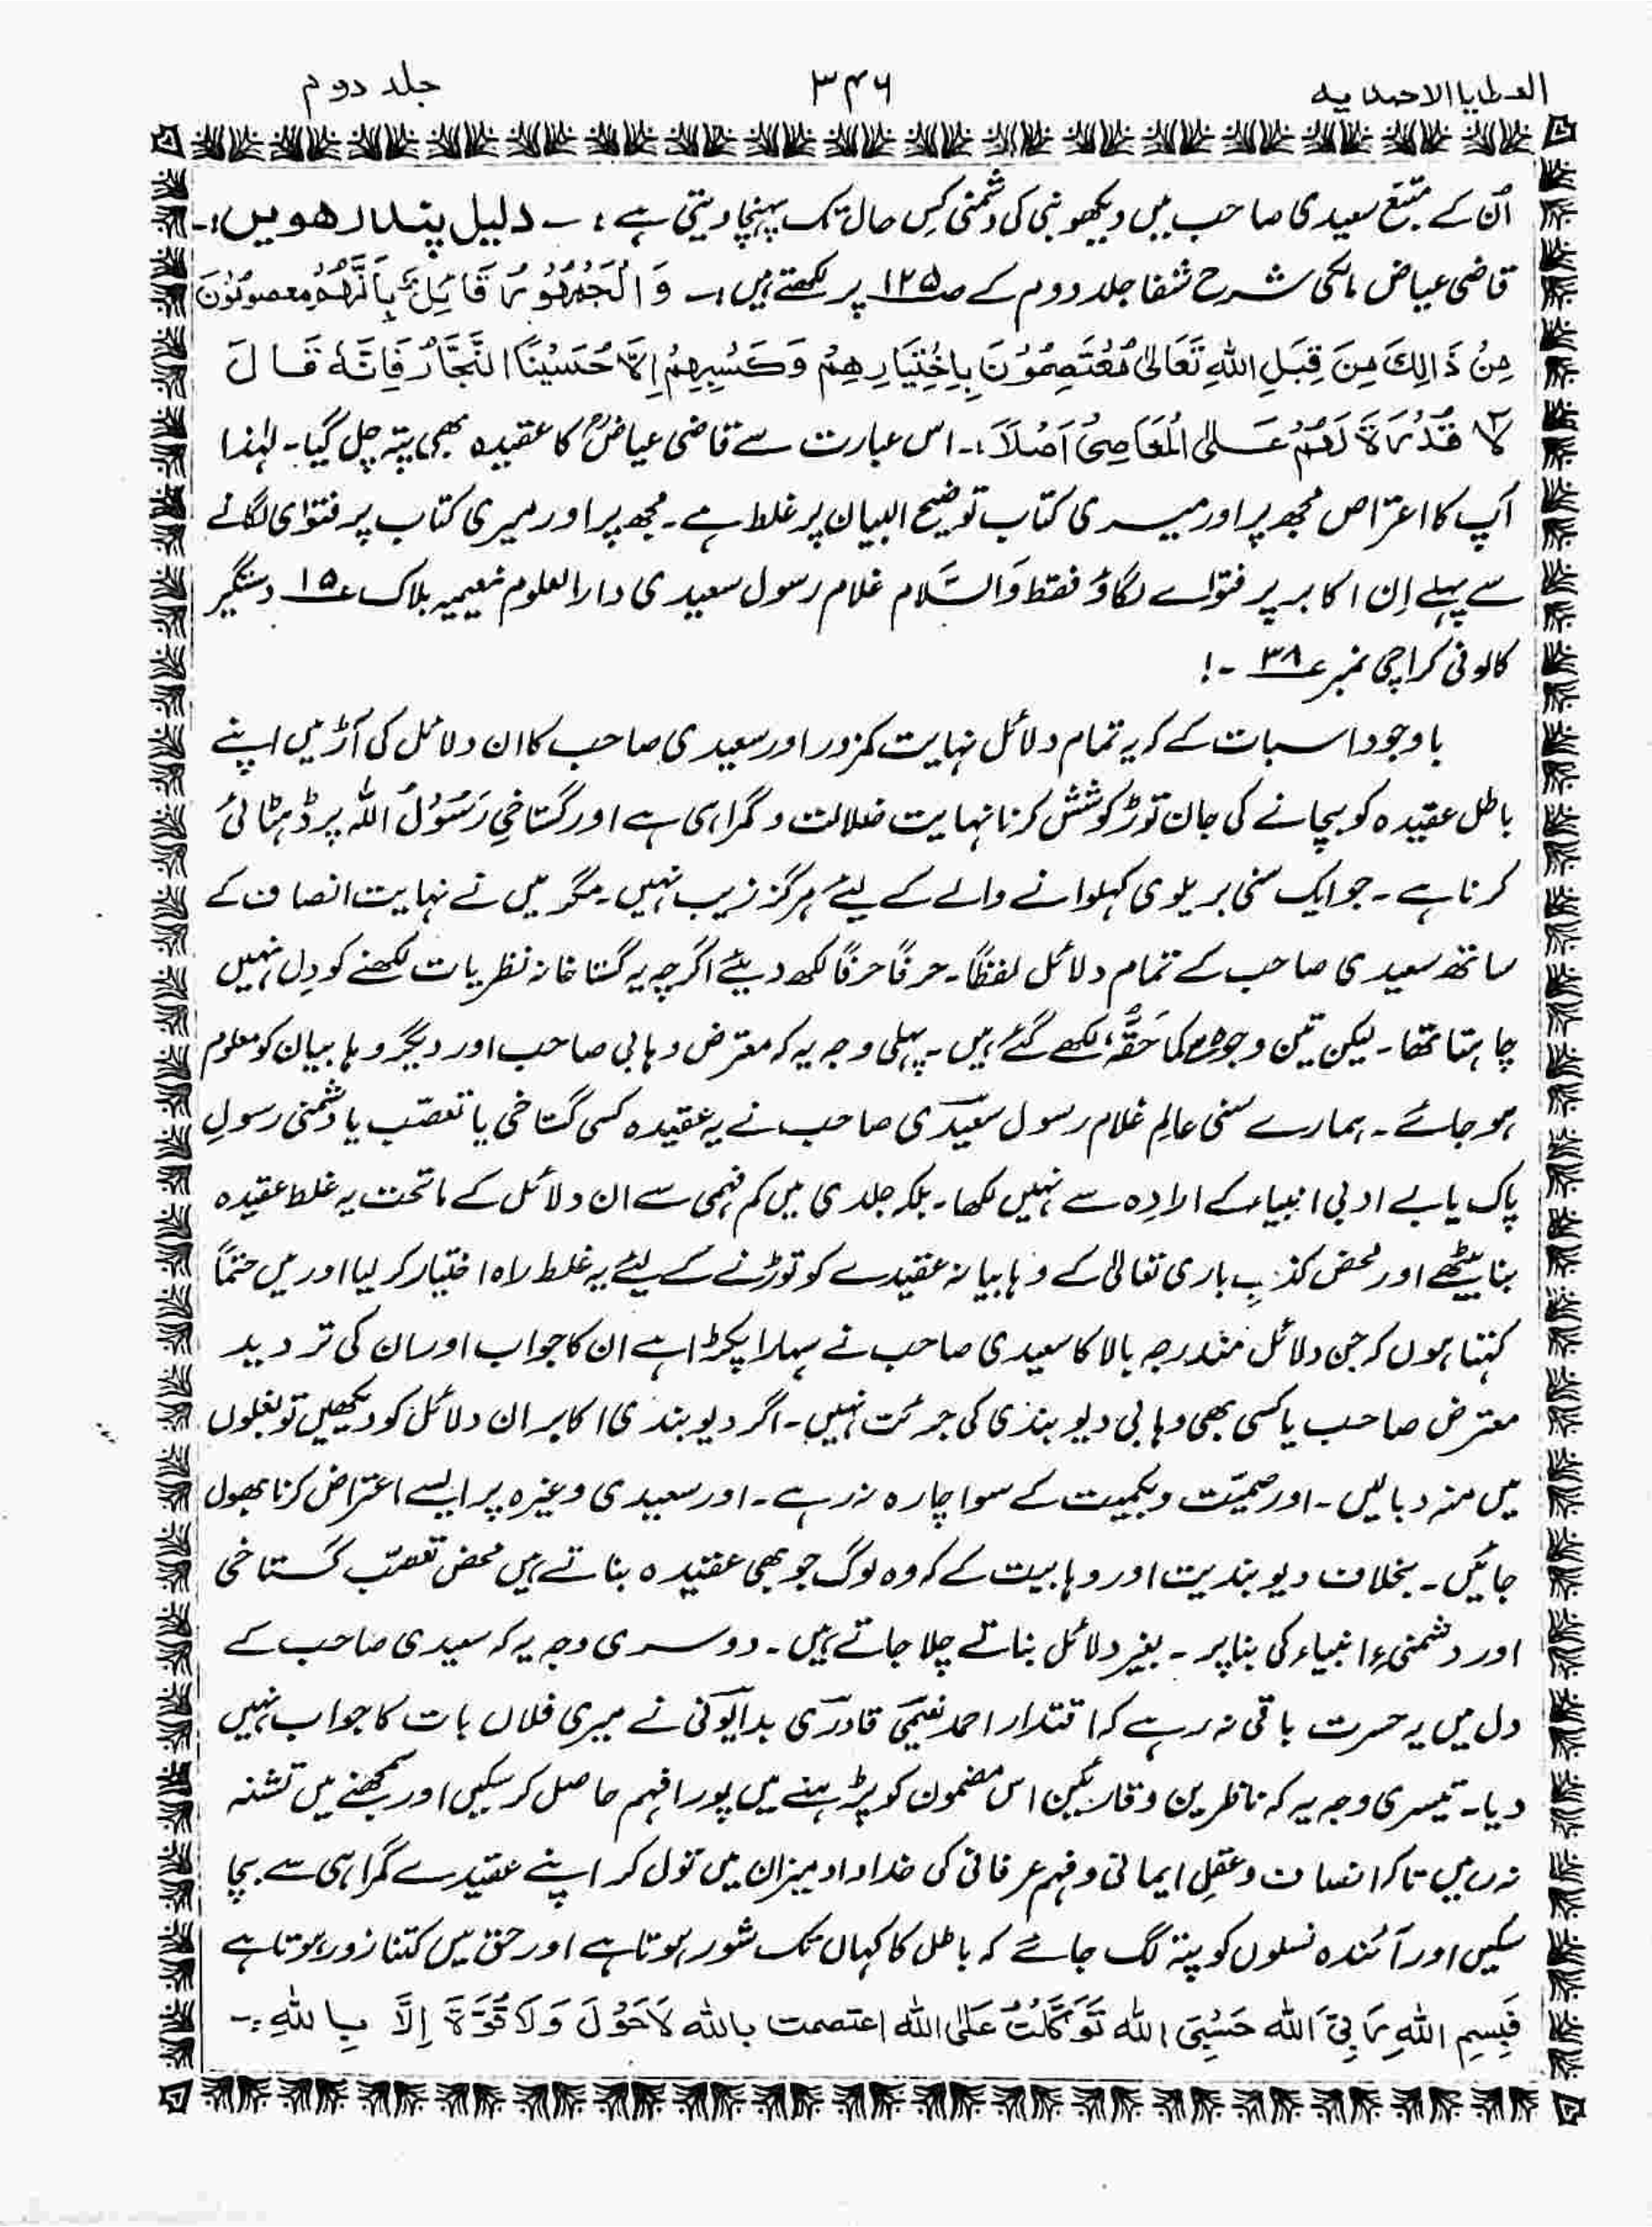 العطایا الاحمدیہ ۳۴۶ جلد دوم
اُن کے متبَع سعیدی صاحب میں دیکھو نبی کی دشمنی کِس حال تک پہنچا دیتی ہے ؛ ۔ دلیل پندرھویں :۔
قاضی عیاض مالکی شرح شفا جلد دوم کے صـ۱۲۵ پر لکھتے ہیں :۔ وَالْجَمْهُوْرُ قَائِلٌ بِاَنَّهُمْ معصومُوْنَ
مِنْ ذَالِكَ مِنَ قِبَلِ اللهِ تَعَالٰى مُعْتَصِمُوْنَ بِاِخْتِيَارِهِمْ وَكَسْبِهِمْ اِلَّا حُسَيْنَا النَّجَّارُ فَاِنَّهٗ قَالَ
لَا قُدْرَةَ لَهُمْ عَلَى الْمَعَاصِىْ اَصْلَاً :۔ اس عبارت سے قاضی عیاضؒ کا عقیدہ بھی پتہ چل گیا۔ لہٰذا
آپ کا اعتراض مجھ پر اور میری کتاب توضیح البیان پر غلط ہے۔ مجھ پر اور میری کتاب پر فتوٰی لگانے
سے پہلے اِن اکابر پر فتوٰے لگاؤ فقط وَالسَّلام غلام رسول سعیدی دارالعلوم نعیمیہ بلاک ؏۱۵ دستگیر
کالونی کراچی نمبر ؏۳۸ ۔!
باوجود اسبات کے کہ یہ تمام دلائل نہایت کمزور اور سعیدی صاحب کا ان دلائل کی آڑ میں اپنے
باطل عقیدہ کو بچانے کی جان توڑ کوشش کرنا نہایت ضلالت و گمراہی ہے اور گستاخیِ رَسُوْلُ اللہ پر ڈہٹائی
کرنا ہے ۔ جو ایک سنی بریلوی کہلوانے والے کے لیئے ہرگز زیب نہیں ۔ مگر میں نے نہایت انصاف کے
ساتھ سعیدی صاحب کے تمام دلائل لفظًا ۔ حرفًا حرفًا لکھ دیئے اگرچہ یہ گستاخانہ نظریات لکھنے کو دِل نہیں
چاہتا تھا ۔ لیکن تین وجوہ سے کما حَقُّہٗ لکھے گئے ہیں ۔ پہلی وجہ یہ کہ معترض وہابی صاحب اور دیگر وہابیان کو معلوم
ہو جائے ۔ ہمارے سنی عالِم غلام رسول سعیدی صاحب نے یہ عقیدہ کسی گستاخی یا تعصّب یا دشمنی رسولِ
پاک یا بے ادبی انبیاء کے ارادِہ سے نہیں لکھا ۔ بلکہ جلدی میں کم فہمی سے ان دلائل کے ماتحت یہ غلط عقیدہ
بنا بیٹھے اور محض کذبِ باری تعالیٰ کے وہابیانہ عقیدے کو توڑنے کے لیئے یہ غلط راہ اختیار کر لیا اور میں حتمًا
کہتا ہوں کہ جن دلائل مندرجہ بالا کا سعیدی صاحب نے سہارا پکڑا ہے ان کا جواب اور ان کی تردید
معترض صاحب یا کسی بھی وہابی دیوبندی کی جرئت نہیں ۔ اگر دیوبندی اکابر ان دلائل کو دیکھیں تو بغلوں
میں منہ دبالیں ۔ اور صمیّت و بکمیت کے سوا چارہ نہ رہے ۔ اور سعیدی وغیرہ پر ایسے اعتراض کرنا بھول
جائیں ۔ بخلاف دیوبندیت اور وہابیت کے کہ وہ لوگ جو بھی عقیدہ بناتے ہیں محض تعصّب گستاخی
اور دشمنیءِ انبیاء کی بنا پر ۔ بغیر دلائل بناتے چلا جاتے ہیں ۔ دوسری وجہ یہ کہ سعیدی صاحب کے
دل میں یہ حسرت باقی نہ رہے کہ اقتدار احمد نعیمی قادری بدایونی نے میری فلاں بات کا جواب نہیں
دیا ۔ تیسری وجہ یہ کہ ناظرین و قارئین اس مضمون کو پڑہنے میں پورا فہم حاصل کر سکیں اور سمجھنے میں تشنہ
نہ رہیں تاکہ انصاف و عقلِ ایمانی و فہم عرفانی کی خداداد میزان میں تول کر اپنے عقیدے گمراہی سے بچا
سکیں اور آئندہ نسلوں کو پتہ لگ جائے کہ باطل کا کہاں تک شور ہوتا ہے اور حق میں کتنا زور ہوتا ہے
فَبِسِمِ اللهِ رَبِّىَ اَللہ حَسْبِىَ اللہ تَوَكَّلْتُ عَلَى اللہ اعتصمت باللہ لَاحَوْلَ وَلَا قُوَّةَ اِلَّا بِاللهِ :۔